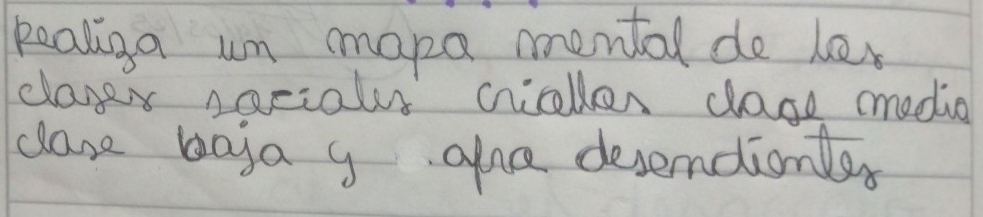 Realiza un mapa mental de las
clases sociales criollas clase media
clase baja y afra desendientes